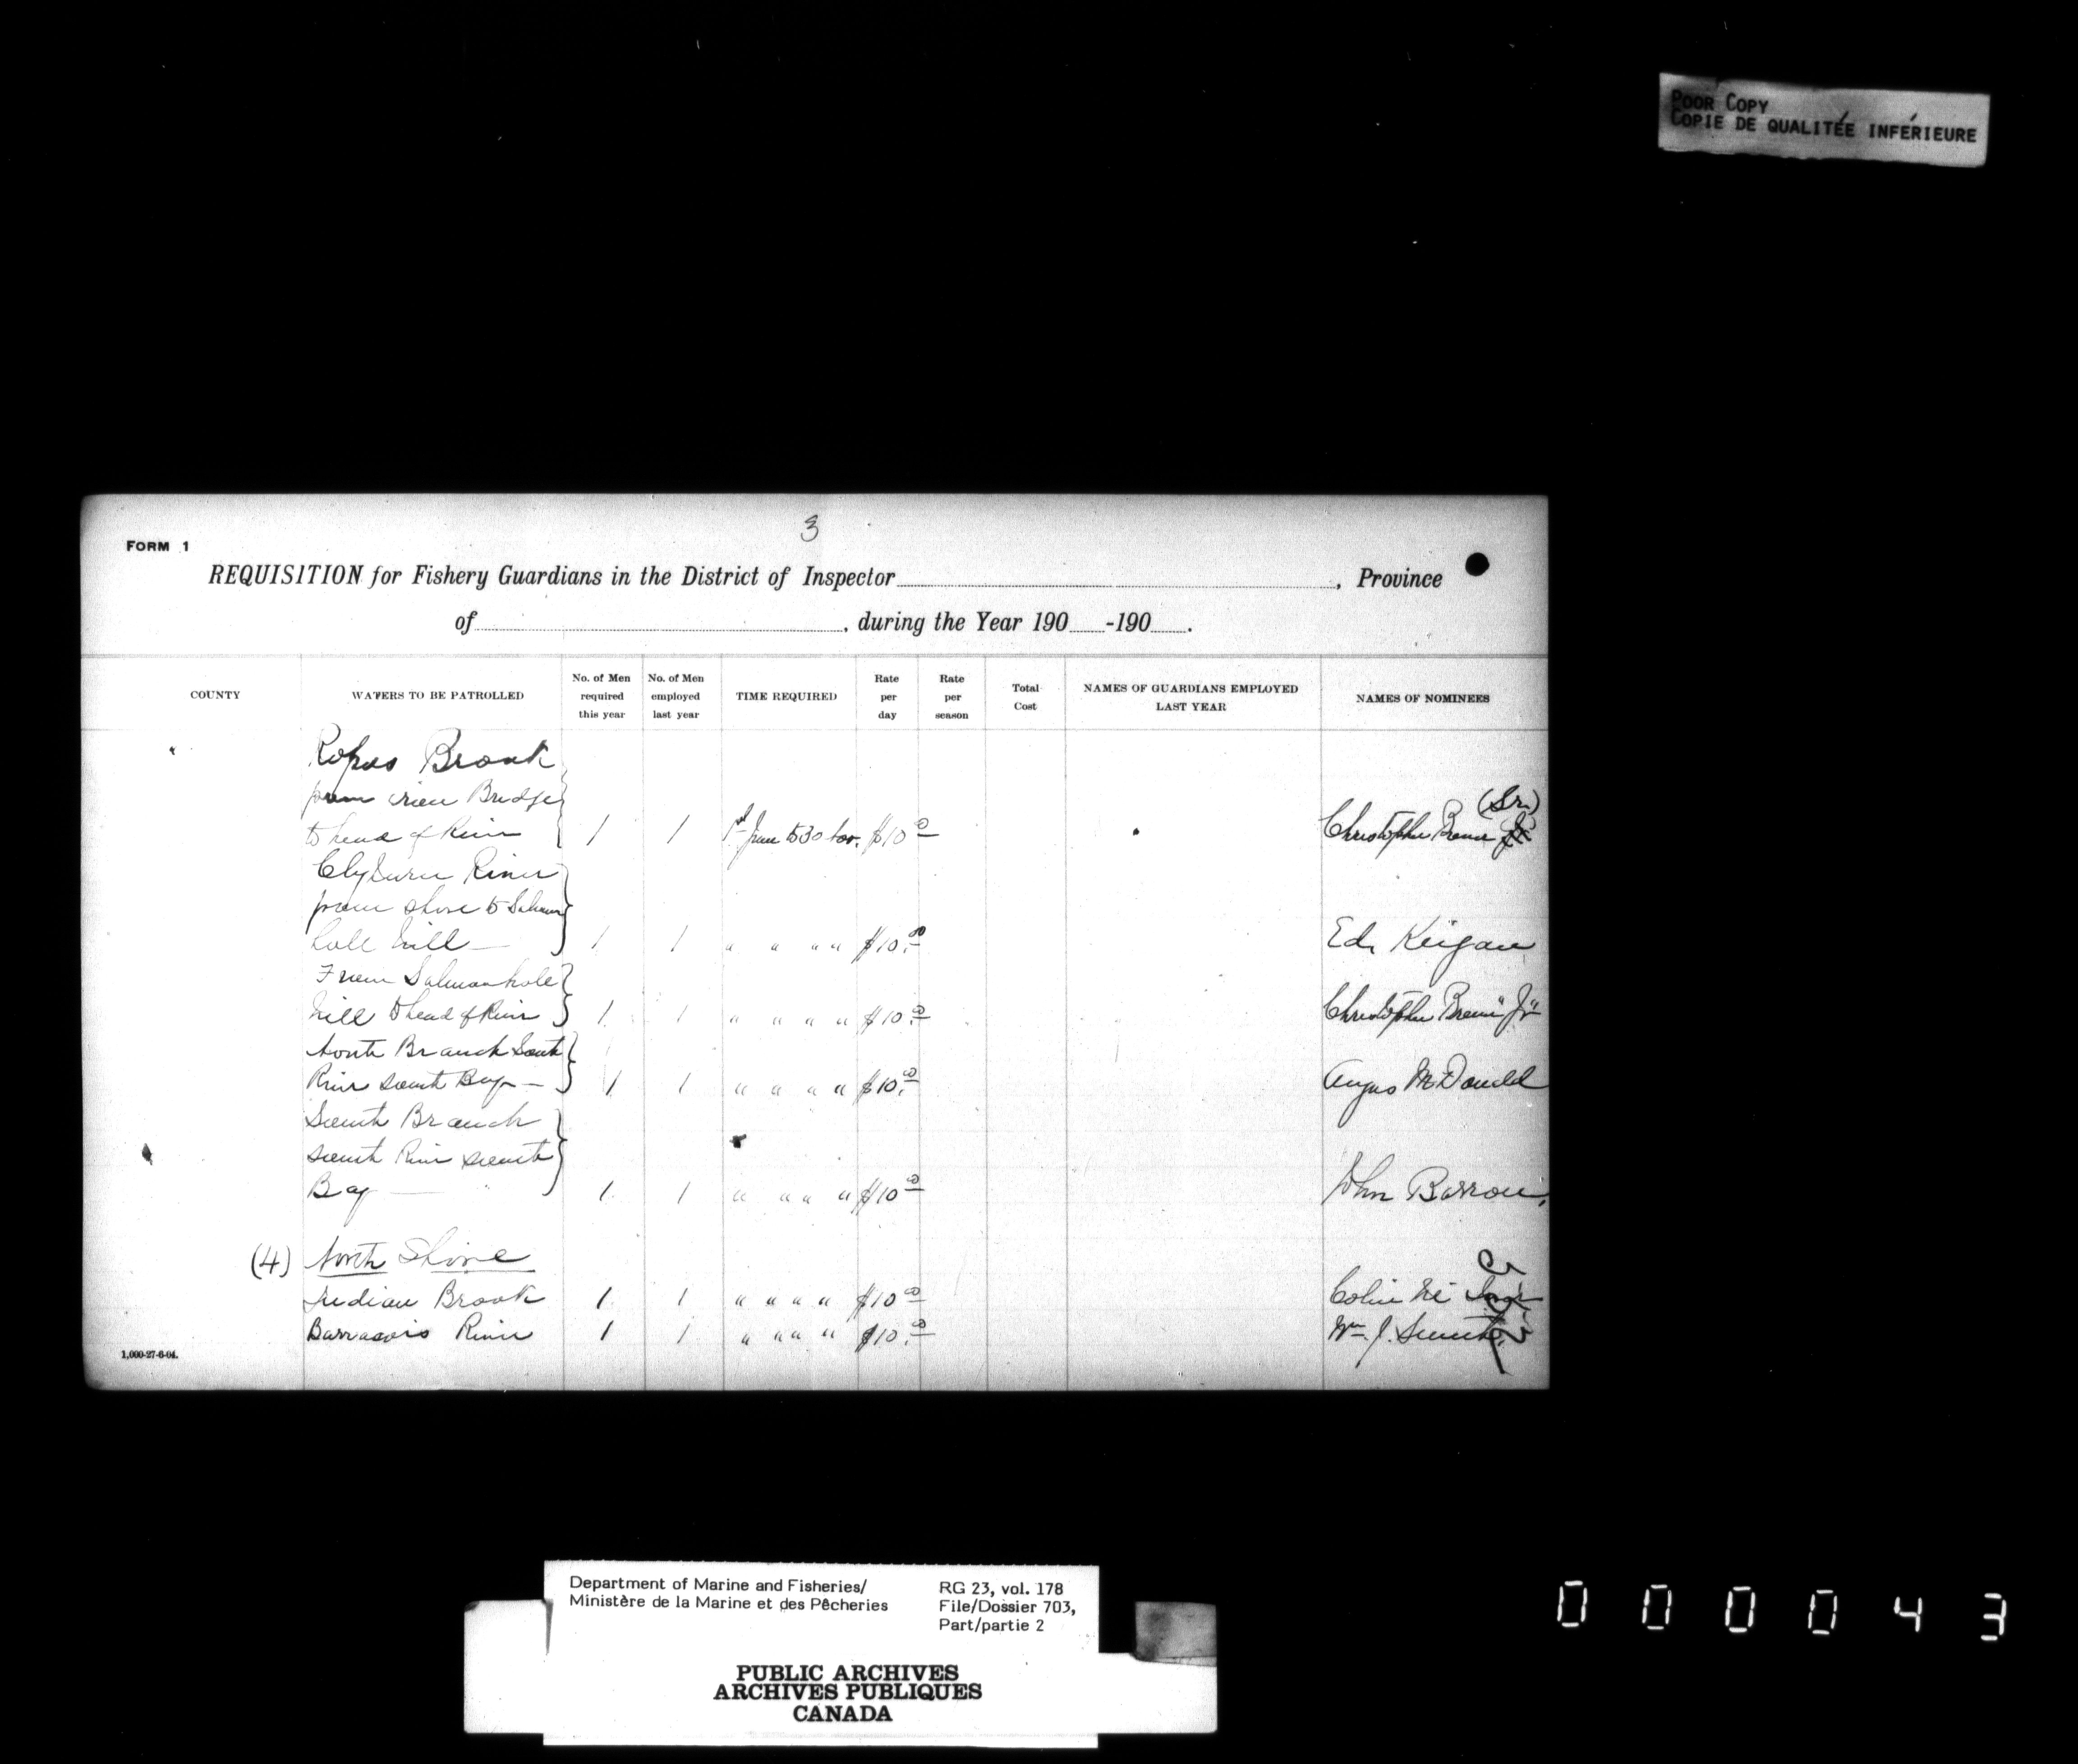 POOR COPY
COPIE DE QUALITÉE INFÉRIEURE
3
FORM 1
REQUISITION for Fishery Guardians in the District of Inspector, Province
of, during the Year 190-190.
COUNTY
WATERS TO BE PATROLLED
No. of Men required this year
No. of Men employed last year
TIME REQUIRED
Rate per day
Rate per season
Total Cost
NAMES OF GUARDIANS EMPLOYED LAST YEAR
NAMES OF NOMINEES
Brook
from Bridge (Sr.)
to head of River 1 1 1st June to 30 Nov. $10.00 Christopher
Clyburn River
from shore to Salmon
hole hill — 1 1 " " " " $10.00 Ed.
From Salmon hole
hill to head of River 1 1 " " " " $10.00 Christopher Jr
North Branch South
River South Bay — 1 1 " " " " $10.00 Angus McDonald
South Branch
South River South
Bay — 1 1 " " " " $10.00 John Barron,
(4) North Shore
Indian Brook 1 1 " " " " $10.00 Colin Mc
Barrasois River 1 1 " " " " $10.00 Wm. J. Smith
1,000-27-6-04.
Department of Marine and Fisheries/
Ministère de la Marine et des Pêcheries
RG 23, vol. 178
File/Dossier 703,
Part/partie 2
PUBLIC ARCHIVES
ARCHIVES PUBLIQUES
CANADA
000043